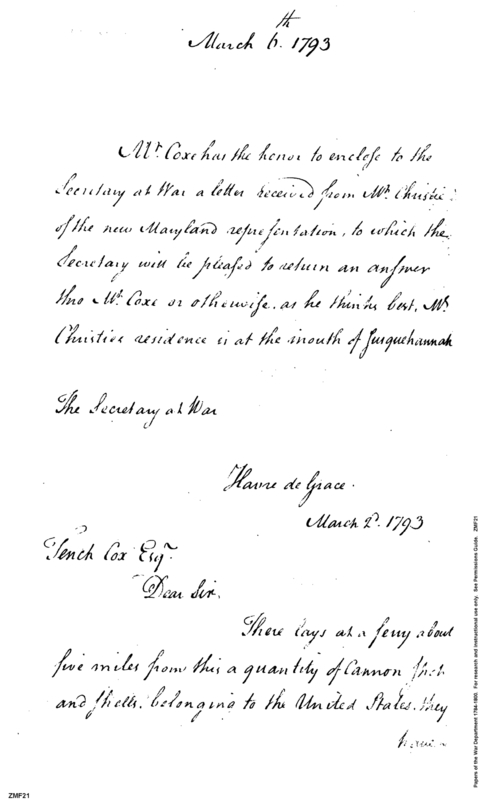 March 6.th 1793
Mr. Coxe has the honor to enclose to the
Secretary at War a letter received from Mr. Christie
of the new Maryland representation, to which the
Secretary will be pleased to return an answer
thro Mr. Coxe or otherwise. as he thinks best. Mr.
Christies residence is at the mouth of Susquehannah
The Secretary at War
Havre de Grace.
March 2d. 1793
Tench Cox Esqr.
Dear Sir.
There lays at a ferry about
five miles from this a quantity of Cannon Shot
and Shells. belonging to the United States. they
ZMF21
Papers of the War Department 1784-1800. For research and instructional use only. See Permissions Guide. ZMF21